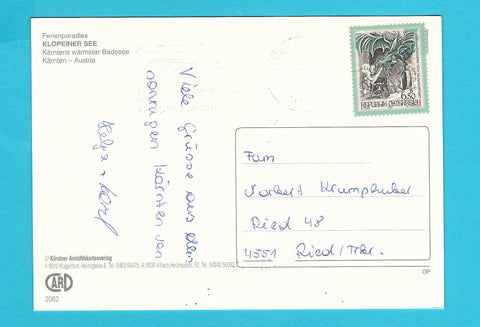 Ferienparadies
KLOPEINER SEE
Kärntens wärmster Badesee
Kärnten – Austria
6.50
REPUBLIK ÖSTERREICH
Viele Grüsse aus dem
sonnigen Kärnten von
Helga + Karl
Fam
Norbert Krumphuber
Ried 48
4551 Ried/Trkr.
© Kärntner Ansichtskartenverlag
A 9010 Klagenfurt, Heinzgasse 8, Tel. 0463 56475, A 9500 Villach, Tel. 04242 56362
CARD
2062
OP